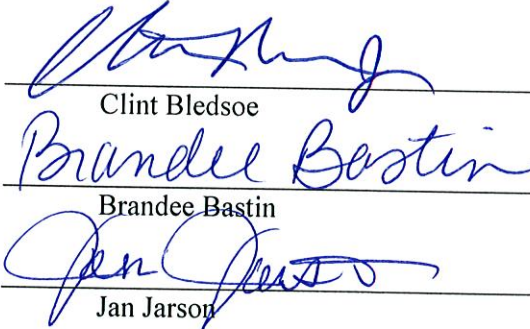 Clint Bledsoe
Brandee Bastin
Brandee Bastin
Jan
Jan Jarson